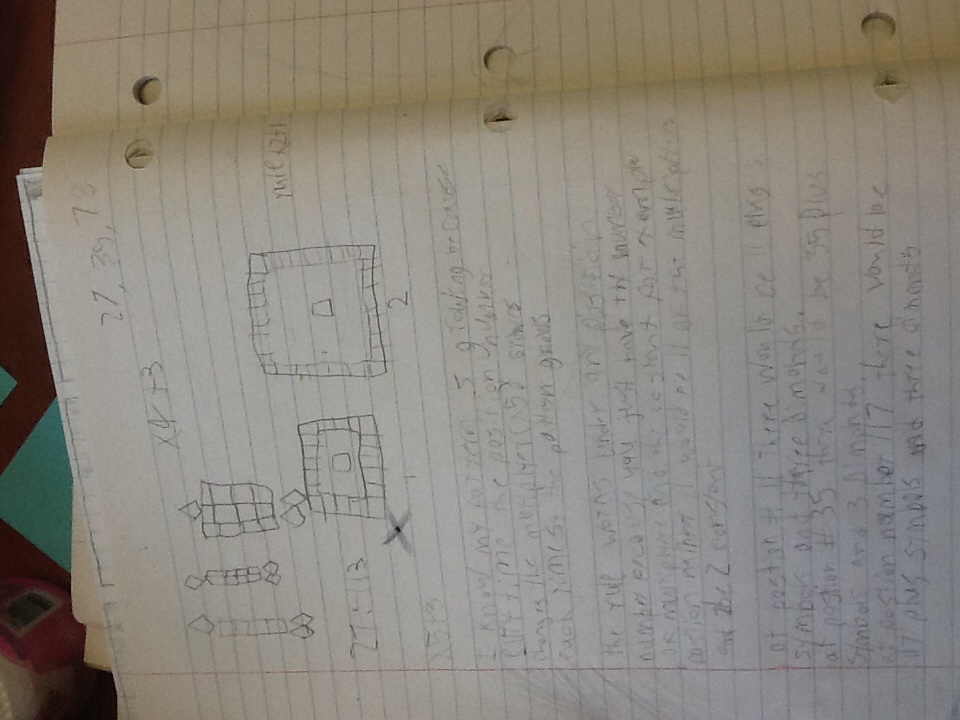 27, 39, 78
x4 +3
rule x2+1
27 : 43
1
2
x5+3
I know my pattern is growing because
every time the position number
changes the multiplyer (x5)
each times. the pattern grows
the rule works under any position
number because you just have the number
or multiplier and the constant for example
postion number 11 would be 11 as the multiplier
and the 2 constant
at position # 11 there would be 11 plus
symbols and three Dimonds.
at position # 35 there would be 35 plus
symbols and 3 Dimonds
at position number 117 there would be
117 plus symbols and three dimonds